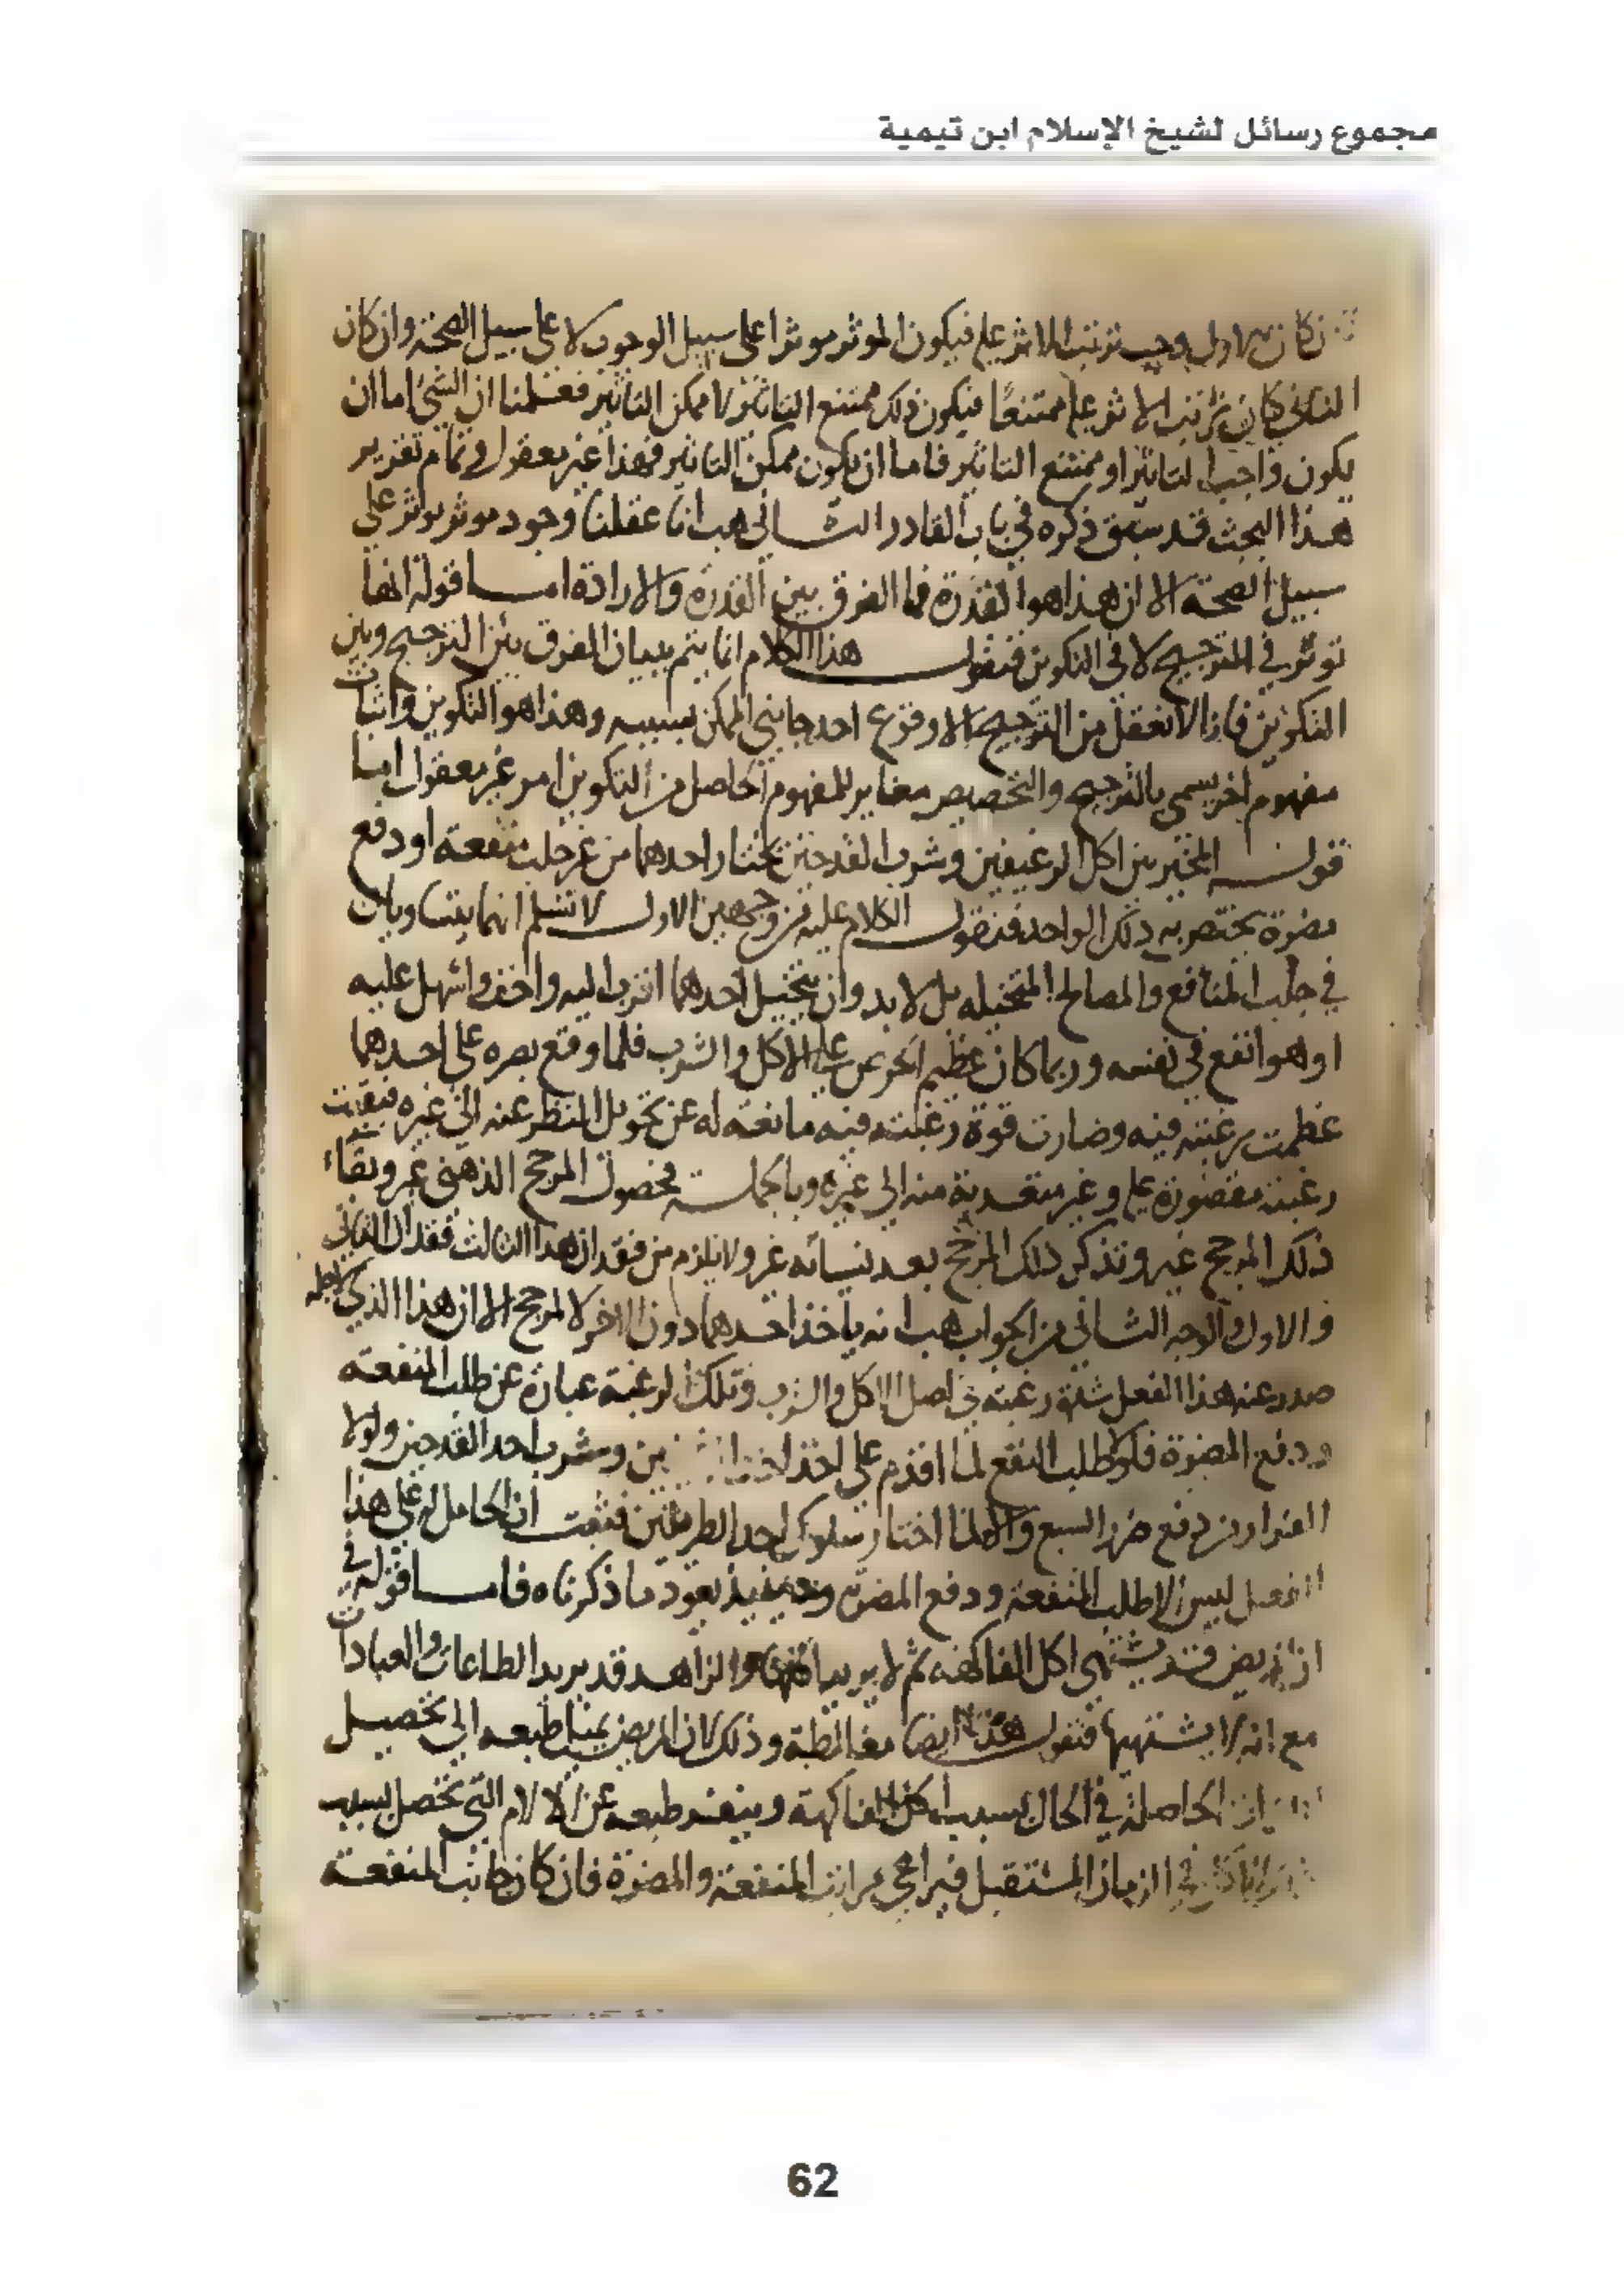 مجموع رسائل لشيخ الإسلام ابن تيمية
كان الاول وجب ترتب الاثر عليه فيكون الموثر موثرا على سبيل الوجوب لا على سبيل الصحة وان كان
الثاني كان ترتب الاثر عليه ممتنعًا فيكون ذلك ممتنع التاثير لا ممكن التاثير فعلمنا ان الشي اما ان
يكون واجب التاثير او ممتنع التاثير فاما ان يكون ممكن التاثير فهذا غير معقول وتمام تقرير
هذا البحث قد سبق ذكره في باب القادر الثاني هب انا عقلنا وجود موثر يوثر على
سبيل الصحة الا ان هذا هو القدرة فما الفرق بين القدرة والارادة اما قوله انها
توثر في الترجيح لا في التكوين فنقول هذا الكلام انما يتم ببيان الفرق بين الترجيح وبين
التكوين فانا لا نعقل من الترجيح الا وقوع احد جانبي الممكن بسببه وهذا هو التكوين واثبات
مفهوم اخر يسمى بالترجيح والتخصيص مغاير للمفهوم الحاصل من التكوين امر غير معقول اما
قوله المخير بين اكل الرغيفين وشرب القدحين يختار احدهما من غير جلب منفعة او دفع
مضرة يختص به ذلك الواحد فنقول الكلام عليه من وجهين الاول لا نسلم انهما يتساويان
في جلب المنافع والمصالح المتخيله بل لا بد وان يتخيل احدهما اقرب اليه واخف واسهل عليه
او هو انفع في نفسه وربما كان عظيم الحرص على الاكل والشرب فلما وقع بصره على احدهما
عظمت رغبته فيه وصارت قوة رغبته فيه مانعة له عن تحويل النظر عنه الى غيره فبقيت
رغبته مقصورة عليه وغير متعدية منه الى غيره وبالجملة فحصول المرجح الذهني غير وبقاء
ذلك المرجح غير وتذكر ذلك المرجح بعد نسيانه غير ولا يلزم من فقدان هذا الثالث فقدان الثاني
والاول والوجه الثاني من الجواب هب انه ياخذ احدهما دون الاخر لا لمرجح الا ان هذا الذي لاجله
صدر عنه هذا الفعل شدة رغبته في اصل الاكل والشرب وتلك الرغبة عبارة عن طلب المنفعة
ودفع المضرة فلولا طلب النفع لما اقدم على اخذ احد ين وشرب احد القدحين ولولا
الفرار من دفع ضرر السبع والا لما اختار سلوك احد الطريقين فثبت ان الحامل له على هذا
الفعل ليس الا طلب المنفعة ودفع المضرة وحينيذ يعود ما ذكرناه فاما قوله في
ان المريض قد يشتهي اكل الفاكهة ثم لا يريد والزاهد قد يريد الطاعات والعبادات
مع انه لا يشتهيها فنقول هذه ايضا مغالطة وذلك لان المريض يميل طبعه الى تحصيل
الحاصلة في الحال بسبب اكل الفاكهة وينفر طبعه عن الالام التي تحصل بسبب
في الزمان المستقبل فيراعي مراتب المنفعة والمضرة فان كان جانب المنفعة
62